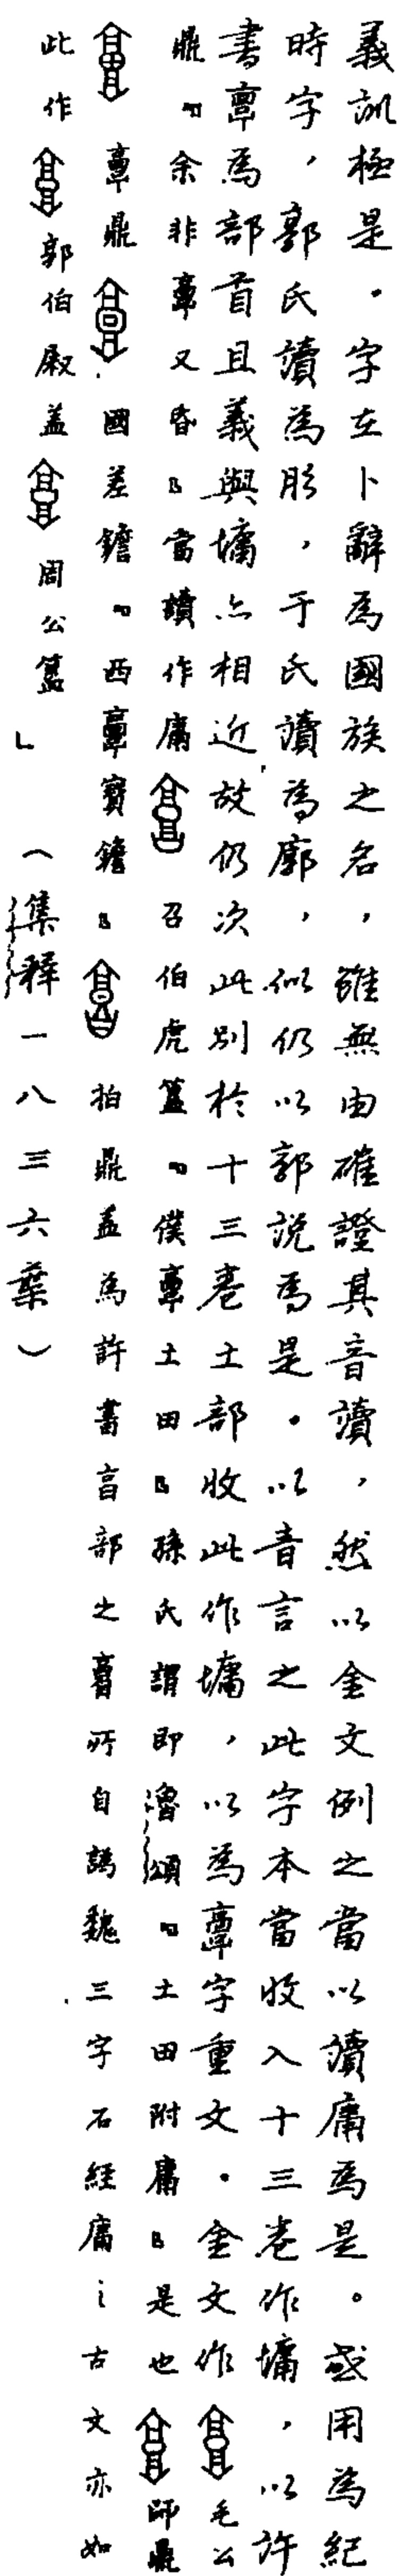 義訓極是。字在卜辭為國族之名，雖無由確證其音讀，然以金文例之當以讀庸為是。或用為紀
時字，郭氏讀為肜，于氏讀為廓，似仍以郭說為是。以音言之此字本當收入十三卷作墉，以許
書𩫖為部首且義與墉亦相近故仍次此別於十三卷土部收此作墉，以為𩫖字重文。金文作毛公
鼎「余非𩫖又昏」當讀作庸召伯虎簋「僕𩫖土田」孫氏謂即魯頌「土田附庸」是也師𩫖
𩫖鼎國差𦉜「西𩫖寶𦉜」拍鼎蓋為許書㐭部之𩫖所自譌魏三字石經庸之古文亦如
此作郭伯𠭯蓋周公簋」（集釋一八三六葉）